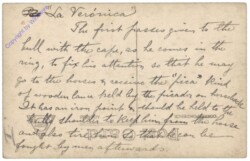 La Verónica
The first passes given to the
bull with the cape, as he comes in the
ring, to fix his attention so that he may
go to the horses & receive the "pica" kind
of wooden lance held by the picador on horseback
It has an iron point & should be held to the
bull's shoulder to keep him from the horse
and also tire him so that he can be
fought by men afterwards.